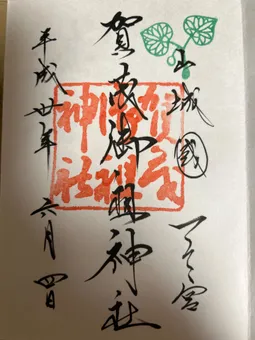 山城國
一之宮
賀茂御祖神社
平成廿年 六月 四日
賀茂御祖神社